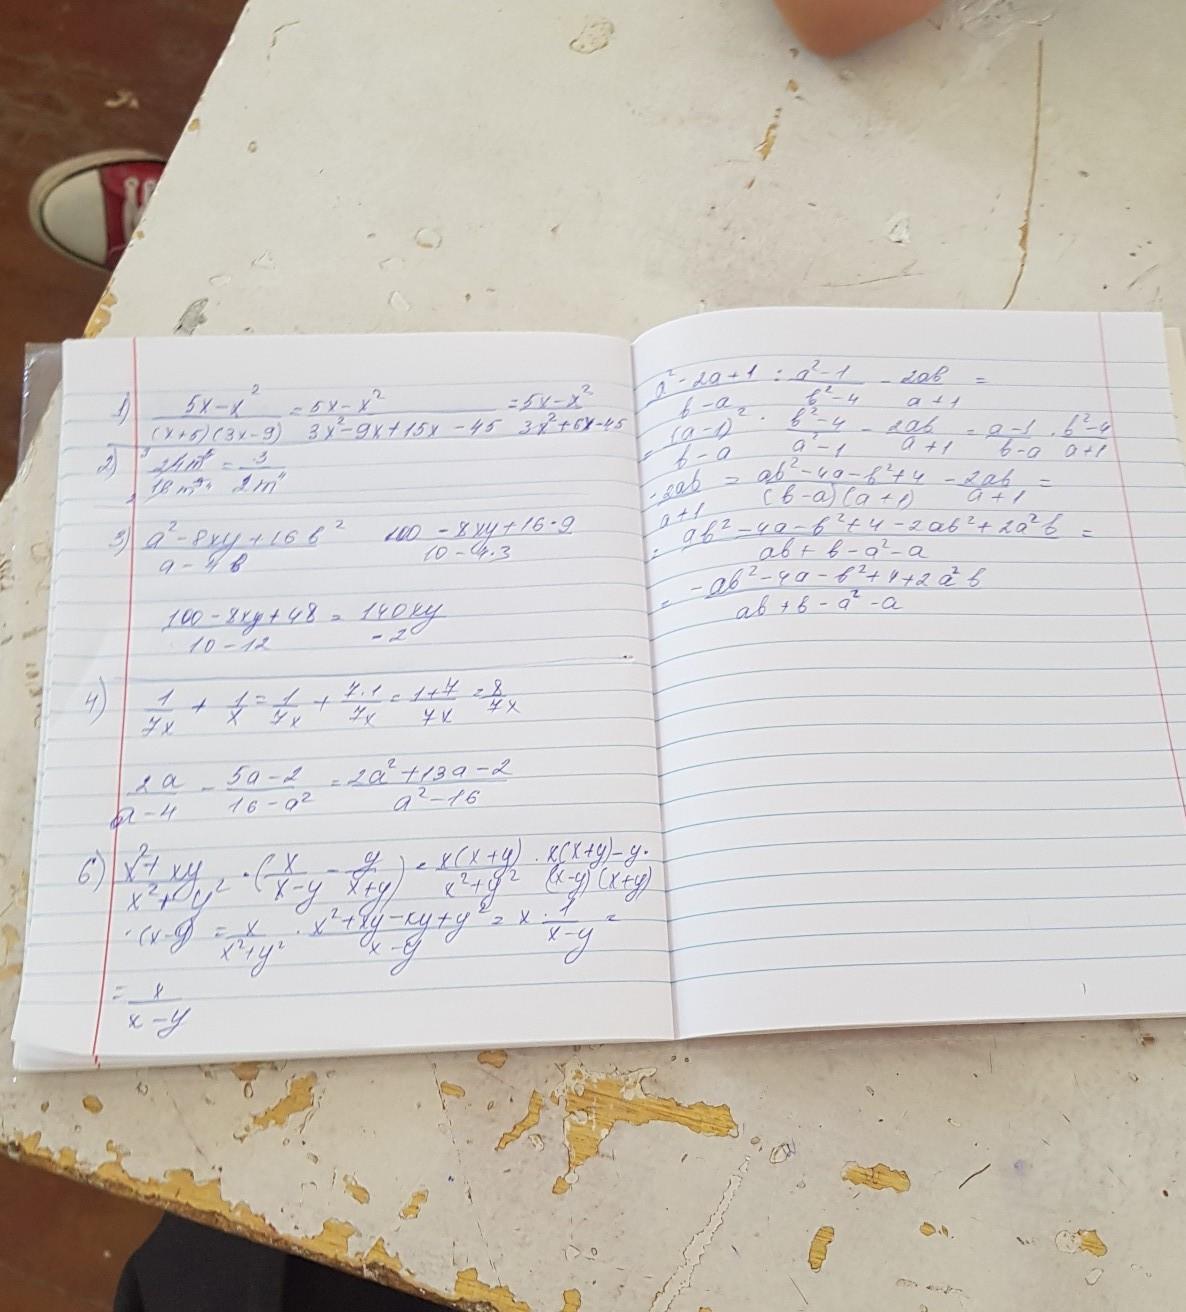 1) (5x-x²)/((x+5)(3x-9)) = (5x-x²)/(3x²-9x+15x-45) = (5x-x²)/(3x²+6x-45)
2) = 3/2m⁴
3) (a²-8xy+16b²)/(a-4b) (100-8xy+16·9)/(10-4·3)
(100-8xy+48)/(10-12) = 140xy/-2
4) 1/7x + 1/x = 1/7x + 7·1/7x = (1+7)/7x = 8/7x
2a/(a-4) - (5a-2)/(16-a²) = (2a²+13a-2)/(a²-16)
6) (x²+xy)/(x²+y²) · (x/(x-y) - y/(x+y)) = x(x+y)/(x²+y²) · (x(x+y)-y·)/((x-y)(x+y))
·(x-y) = x/(x²+y²) · (x²+xy-xy+y²)/(x-y) = x · 1/(x-y) =
= x/(x-y)
(a²-2a+1)/(b-a) : (a²-1)/(b²-4) - 2ab/(a+1) =
= (a-1)²/(b-a) · (b²-4)/(a²-1) - 2ab/(a+1) = (a-1)/(b-a) · (b²-4)/(a+1)
- 2ab/(a+1) = (ab²-4a-b²+4)/((b-a)(a+1)) - 2ab/(a+1) =
= (ab²-4a-b²+4-2ab²+2a²b)/(ab+b-a²-a) =
= (-ab²-4a-b²+4+2a²b)/(ab+b-a²-a)